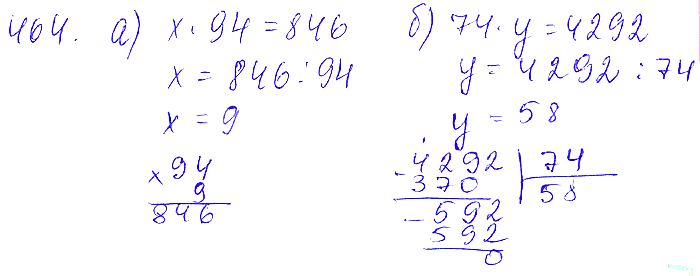 464. а) x · 94 = 846
x = 846 : 94
x = 9
× 94
9
846
б) 74 · y = 4292
y = 4292 : 74
y = 58
- 4292 | 74
370 | 58
- 592
592
0